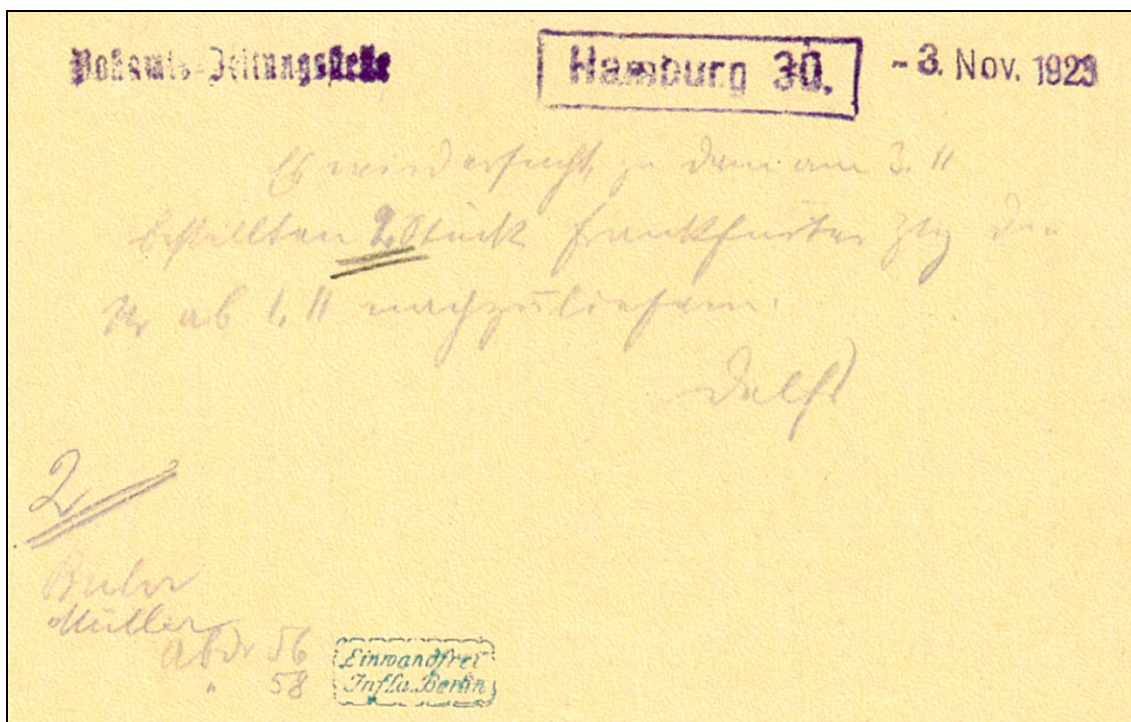 Postamts-Zeitungsstelle Hamburg 30. - 3. Nov. 1923
Es wird ersucht, zu dem am 3. 11
bestellten 2 Stück Frankfurter Ztg die
Nr ab 1. 11 nachzuliefern.
2
Müller
Abdr 56
" 58
Einwandfrei
Infla. Berlin